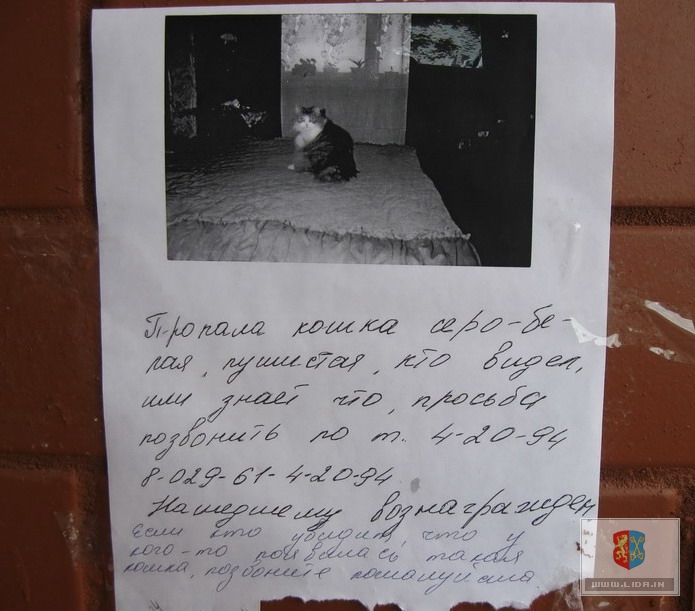 Пропала кошка серо-бе-
лая, пушистая, кто видел,
или знает что, просьба
позвонить по т. 4-20-94
8-029-61-4-20-94
Нашедшему вознагражден
Если кто увидит, что у
кого-то появилась такая
кошка, позвоните пожалуйста
WWW.LIDA.IN